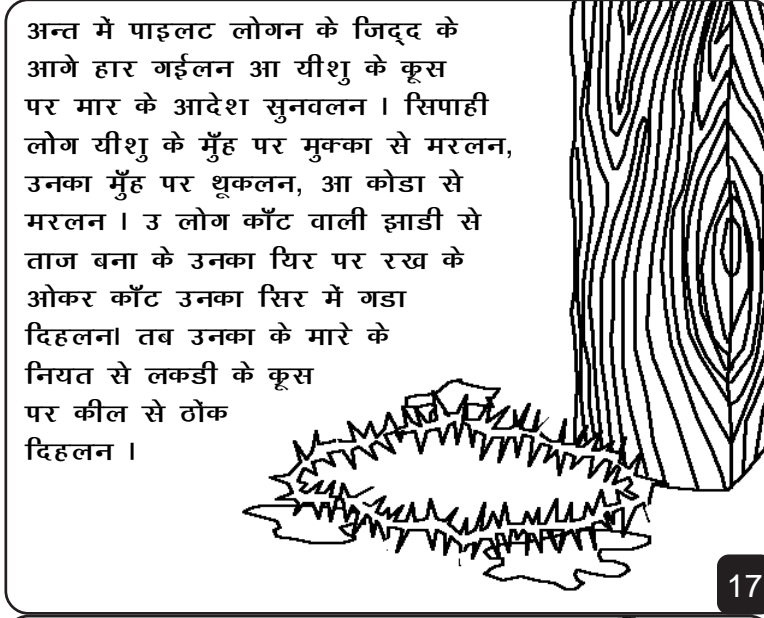 अन्त में पाइलट लोगन के जिद्द के
आगे हार गईलन आ यीशु के कूस
पर मार के आदेश सुनवलन । सिपाही
लोग यीशु के मुँह पर मुक्का से मरलन,
उनका मुँह पर थूकलन, आ कोडा से
मरलन । उ लोग काँट वाली झाडी से
ताज बना के उनका यिर पर रख के
ओकर काँट उनका सिर में गडा
दिहलन। तब उनका के मारे के
नियत से लकडी के कूस
पर कील से ठोंक
दिहलन ।
17